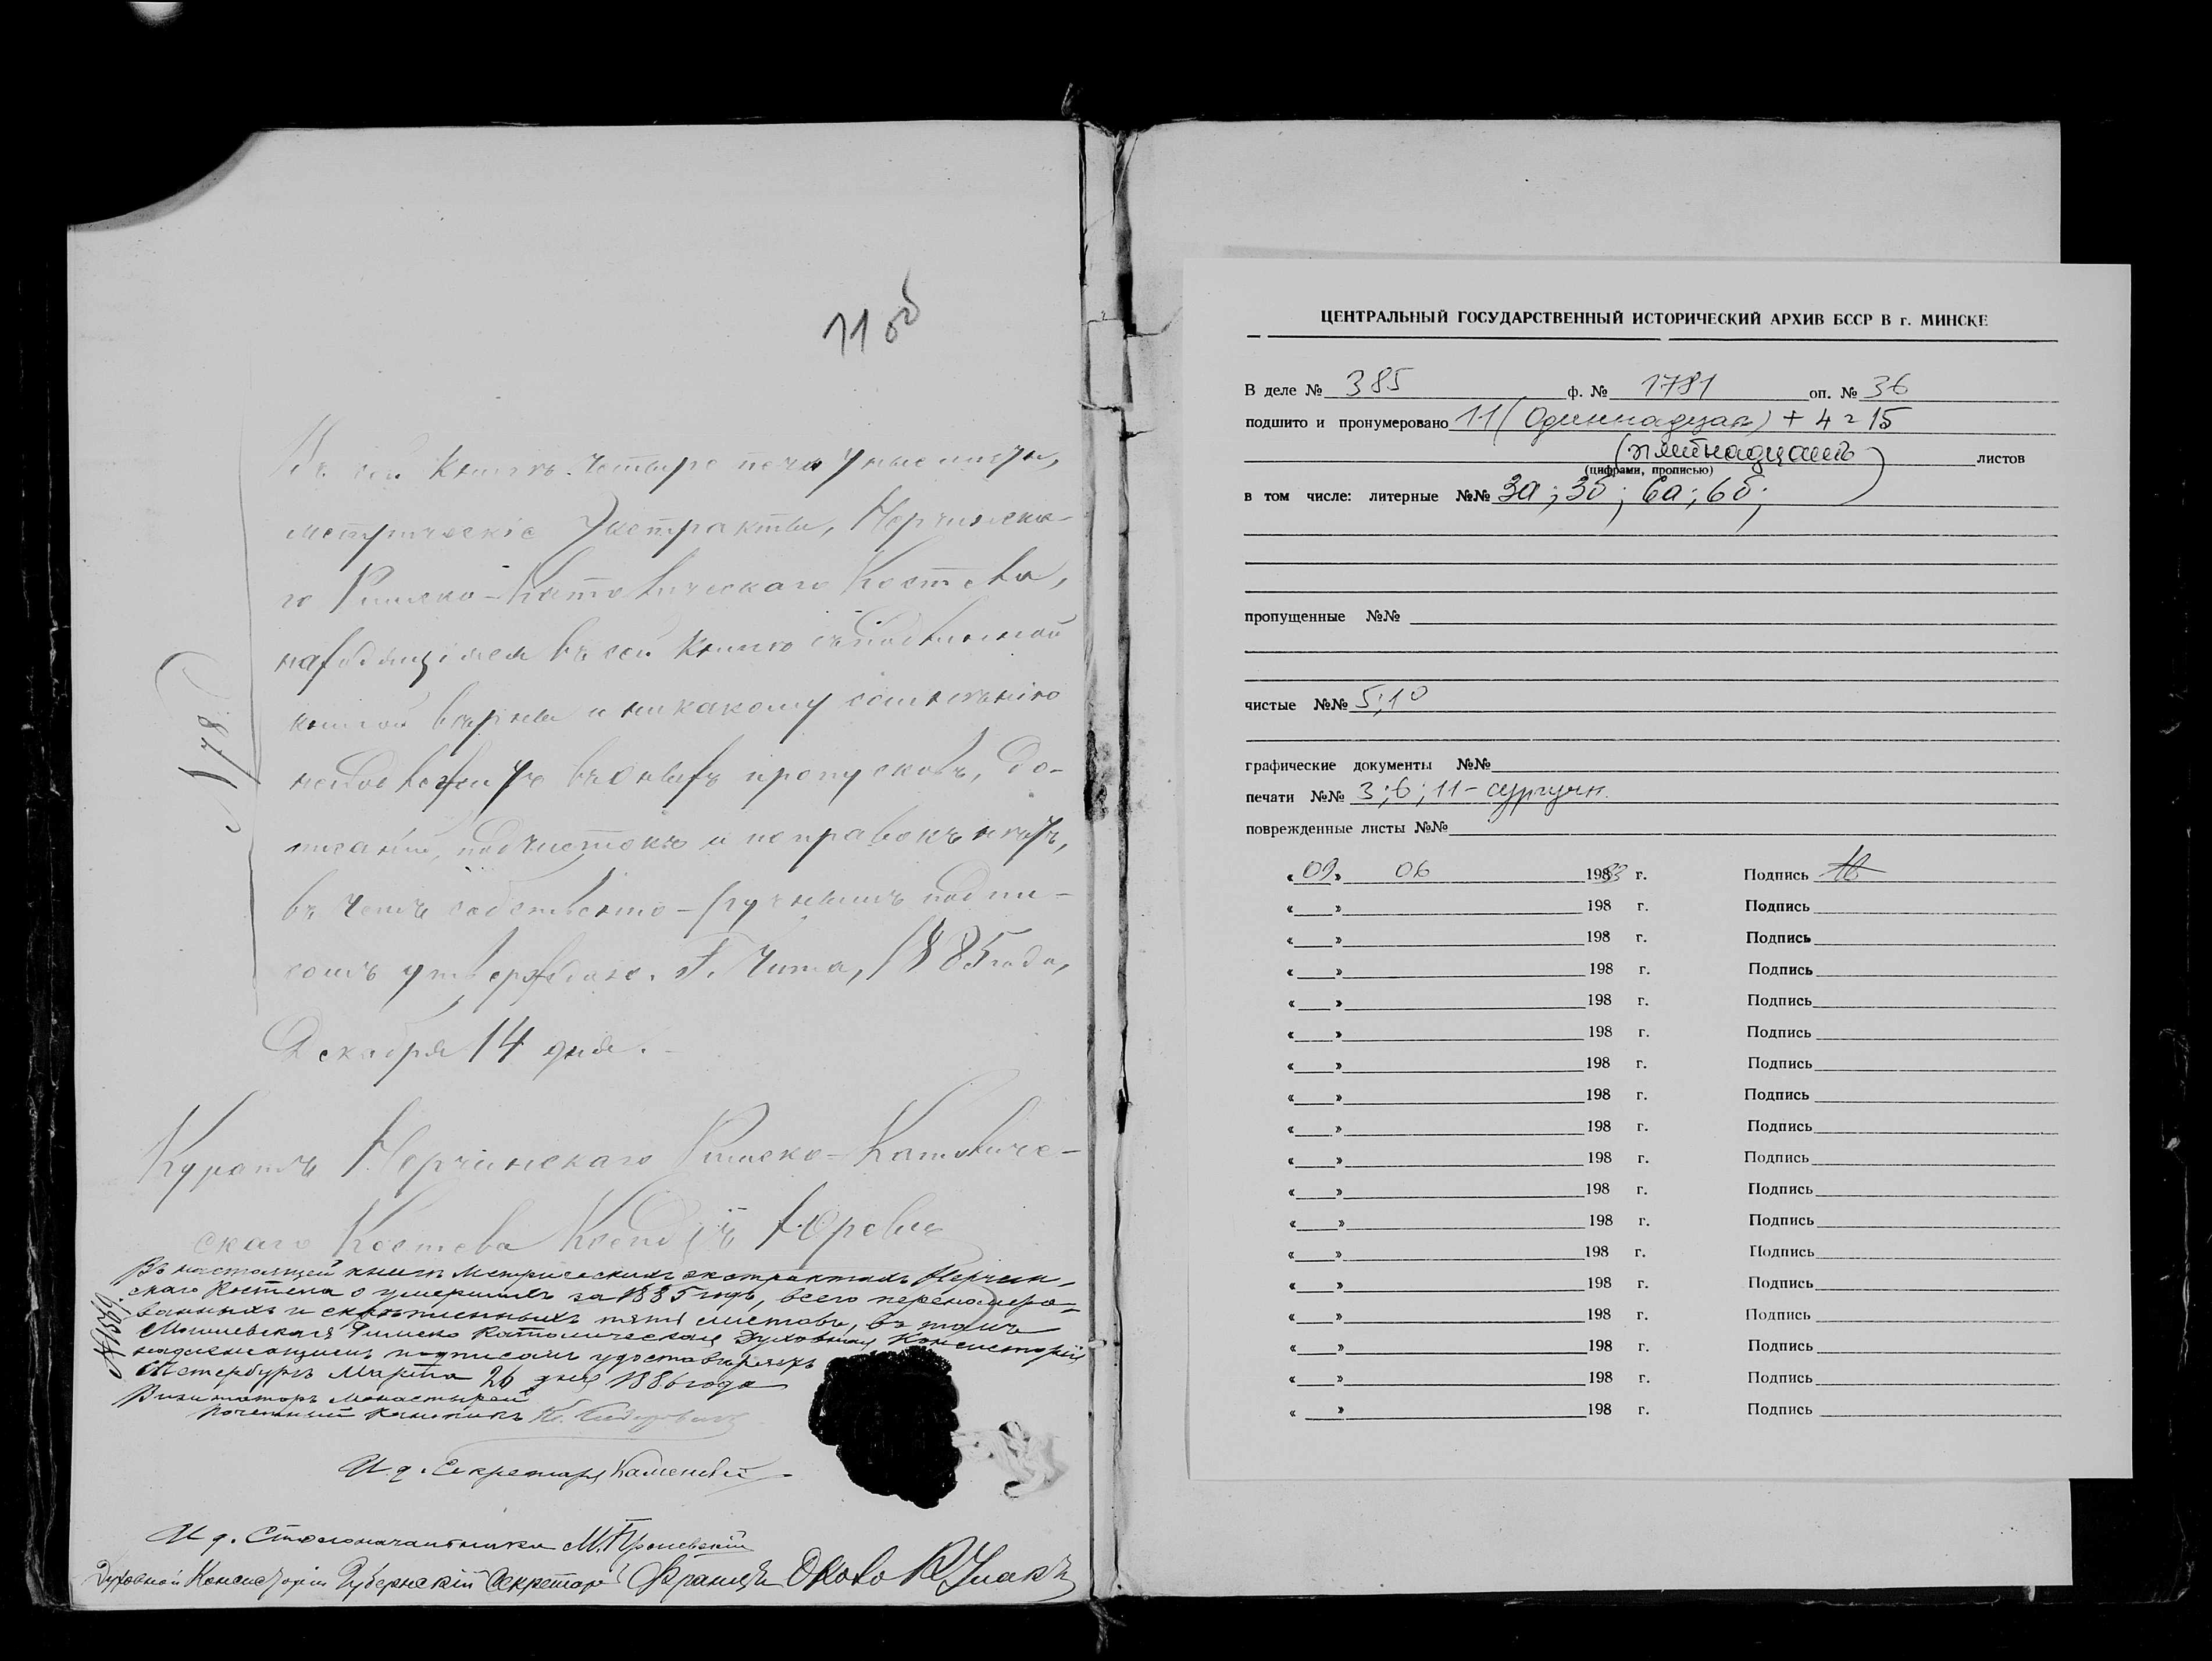 11 об
Въ сей книгѣ четыре печатные листы,
метрическіе Экстракты, Нерчинска-
го Римско-Католическаго Костела,
находящіеся въ сей книгѣ съ подлинной
книгой вѣрны и никакому сомнѣнію
неподлежитъ въ оныхъ пропусковъ, до-
писаній, подчистокъ и поправокъ нѣтъ,
въ чемъ собственно-ручнымъ подпи-
сомъ утверждаю. Г. Чита, 1885 года,
Декабря 14 дня.
№ 178
Куратъ Нерчинскаго Римско-Католиче-
скаго Костела Ксендзъ
Въ настоящей книгѣ Метрическихъ экстрактахъ Нерчин-
скаго Костела о умершихъ за 1885 годъ, всего перенумеро-
ванныхъ и скрѣпленныхъ пять листовъ, въ томъ
Могилевская Римско Католическая Духовная Консисторія
надлежащимъ подписомъ удостовѣряетъ
СПетербургъ Марта 26 дня 1886 года
Визитаторъ Монастырей
почетный каноникъ
И. д. Секретаря
И. д. Столоначальника М.
Духовной Консисторіи Губернскій Секретарь Францъ
ЦЕНТРАЛЬНЫЙ ГОСУДАРСТВЕННЫЙ ИСТОРИЧЕСКИЙ АРХИВ БССР В г. МИНСКЕ
В деле № 385 ф. № 1781 оп. № 36
подшито и пронумеровано 11 (Одиннадцать) + 4 = 15
(пятнадцать) листов
(цифрами, прописью)
в том числе: литерные №№ 3а; 3б; 6а; 6б;
пропущенные №№
чистые №№ 5; 10
графические документы №№
печати №№ 3; 6; 11 - сургучн.
поврежденные листы №№
« 09 » 06 1983 г. Подпись
« » 198 г. Подпись
« » 198 г. Подпись
« » 198 г. Подпись
« » 198 г. Подпись
« » 198 г. Подпись
« » 198 г. Подпись
« » 198 г. Подпись
« » 198 г. Подпись
« » 198 г. Подпись
« » 198 г. Подпись
« » 198 г. Подпись
« » 198 г. Подпись
« » 198 г. Подпись
« » 198 г. Подпись
« » 198 г. Подпись
« » 198 г. Подпись
« » 198 г. Подпись